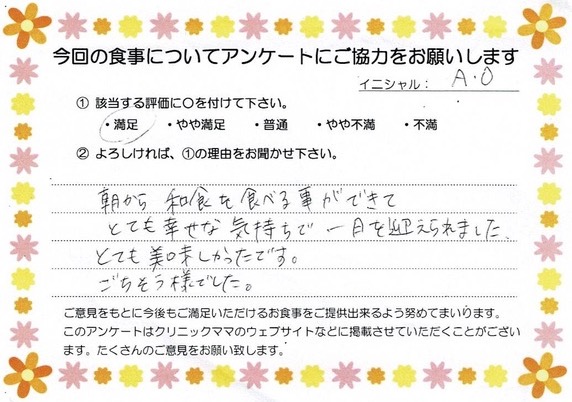 今回の食事についてアンケートにご協力をお願いします
イニシャル： A.O
① 該当する評価に〇を付けて下さい。
・満足 ・やや満足 ・普通 ・やや不満 ・不満
② よろしければ、①の理由をお聞かせ下さい。
朝から 和食を食べる事ができて
とても幸せな気持ちで 一日を迎えられました。
とても美味しかったです。
ごちそう様でした。
ご意見をもとに今後もご満足いただけるお食事をご提供出来るよう努めてまいります。
このアンケートはクリニックママのウェブサイトなどに掲載させていただくことがござい
ます。たくさんのご意見をお願い致します。